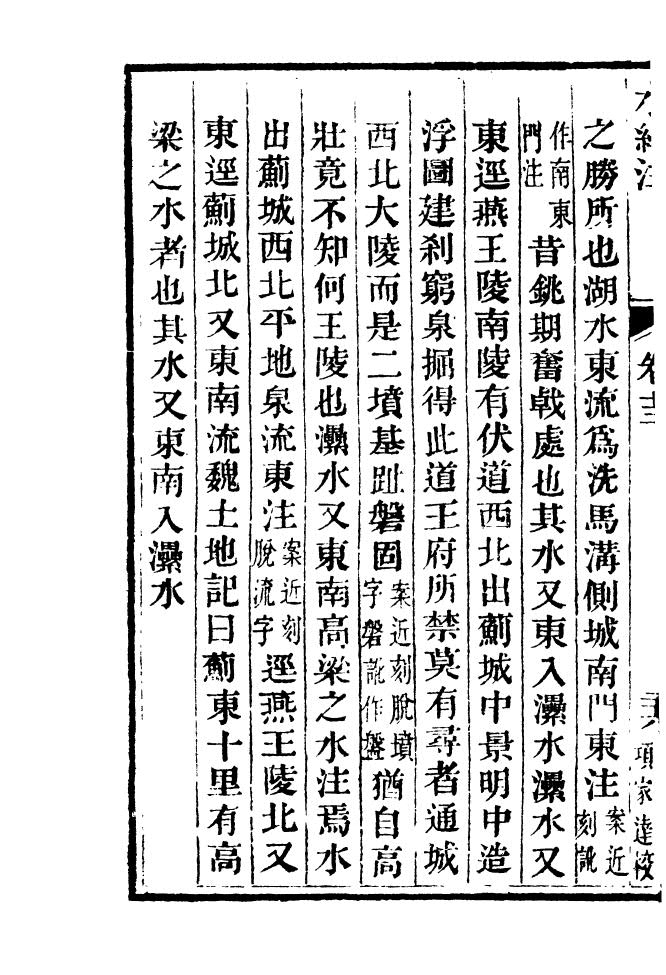 水經注 卷十三 二十六 項家達校
之勝所也湖水東流爲洗馬溝側城南門東注案近刻訛
作南東門注昔銚期奮戟處也其水又東入㶟水㶟水又
東逕燕王陵南陵有伏道西北出薊城中景明中造
浮圖建刹窮泉掘得此道王府所禁莫有尋者通城
西北大陵而是二墳基趾磐固案近刻脫墳字磐訛作盤猶自高
壯竟不知何王陵也㶟水又東南高梁之水注焉水
出薊城西北平地泉流東注案近刻脫流字逕燕王陵北又
東逕薊城北又東南流魏土地記曰薊東十里有高
梁之水者也其水又東南入㶟水